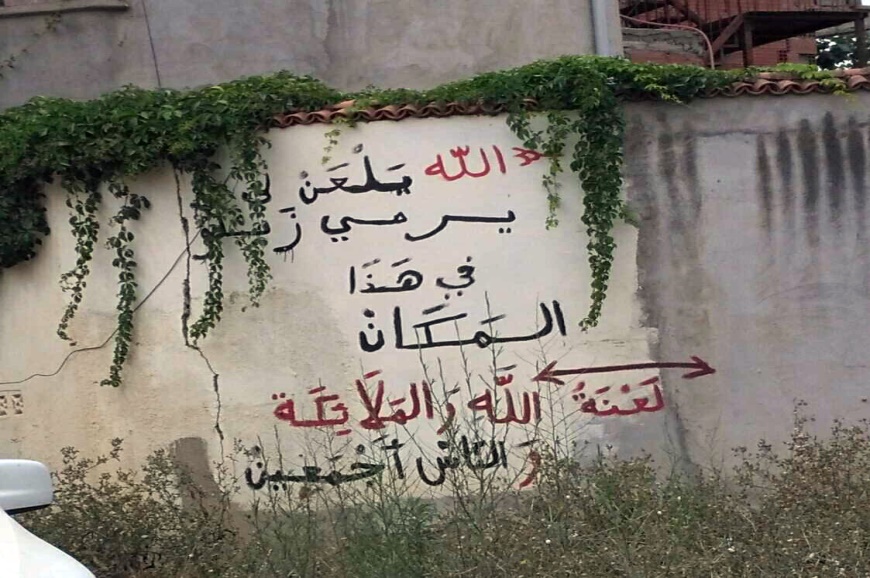 الله يَلْعَنْ لي
يرمي
في هَذَا
المَكَانْ
لَعْنَةُ اللَّه وَالمَلَائِكَة
وَالنَاسْ أَجْمَعِينْ